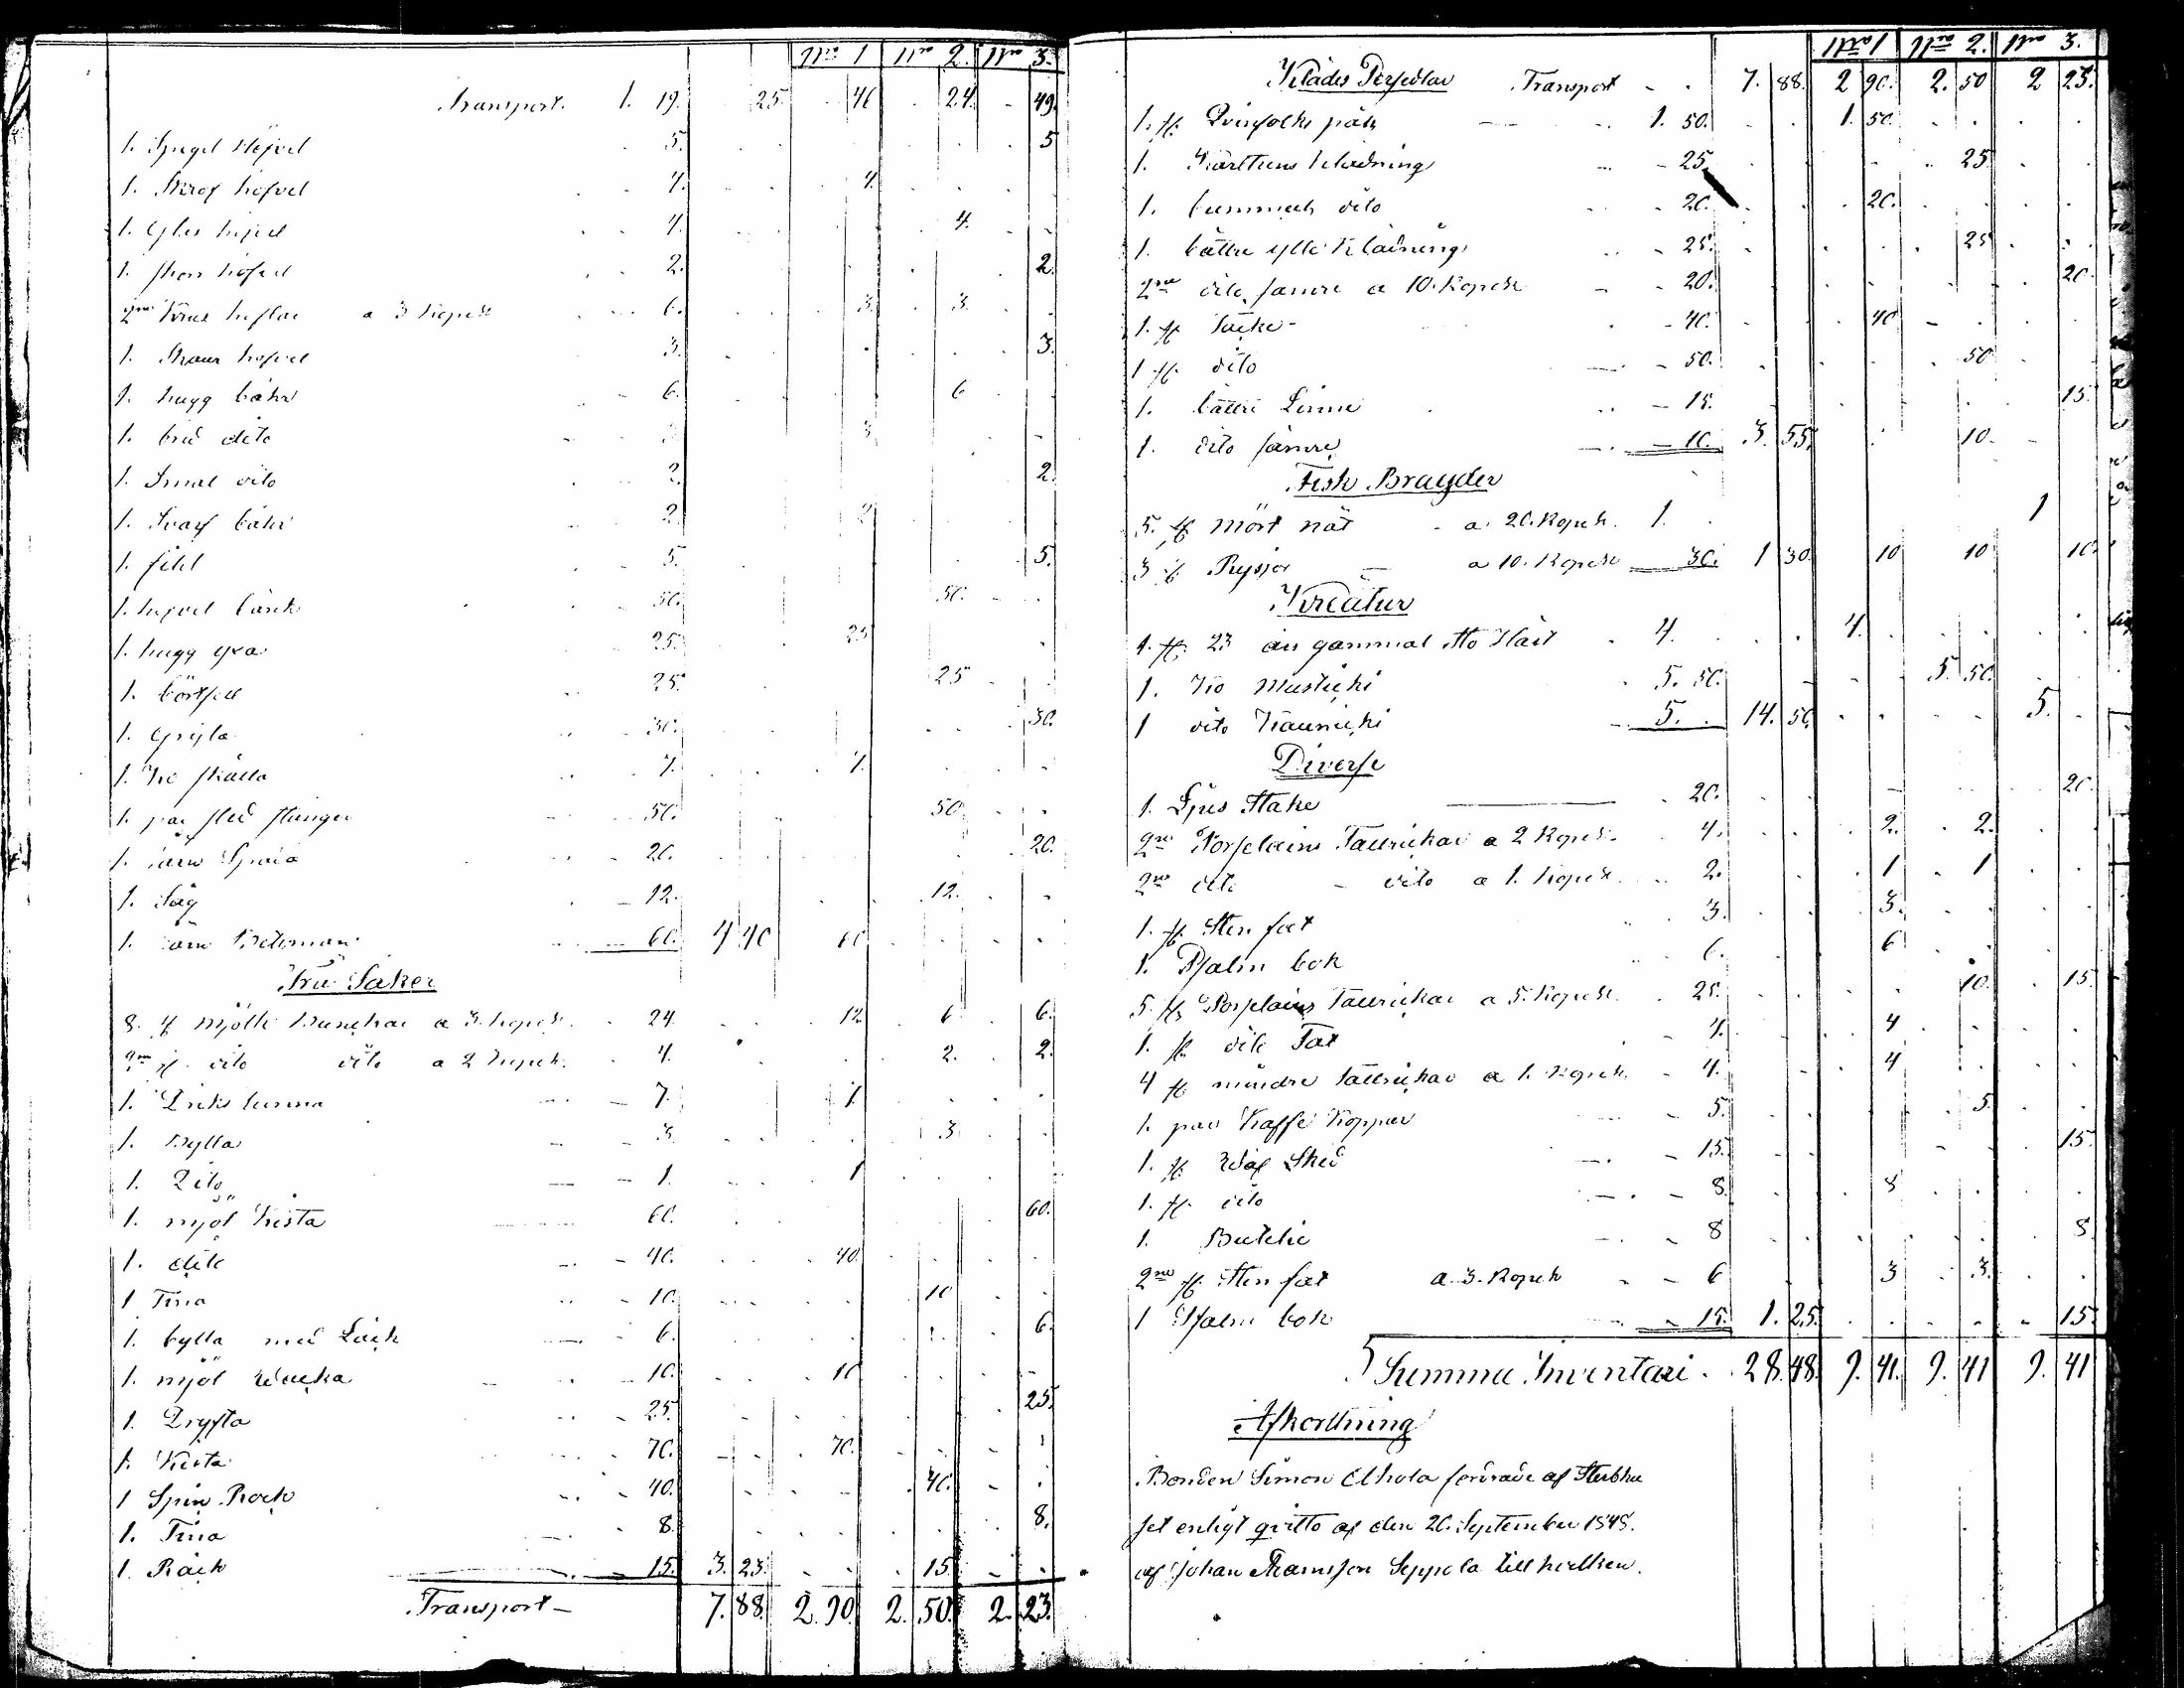 1 att 2. att 3.
Transport. 1. 19. 25. 46 24. 49.
1. Spegel Höfvel 5. 5
1. höfvel 4. 4.
1. 4. 4.
1. höfvel 2. 2.
2ne a 3 Kopek 6. 3. 3.
1. höfvel 3. 3.
1. hugg 6. 6
1. dito 3. 3.
1. dito 2. 2.
1. Svarf 2. 2
1. fihl 5. 5.
1. 50. 50.
1. hugg yxa 25. 25
1. 25. 25
1. Gryta 30. 30.
1. Ko skälla 7. 7.
1. par sled 50. 50
1. 20. 20.
1. Såg 12. 12.
1. Betsman 60. 4 40 60
Trä Saker
8. st mjölk Bunckar a 3. Kopek. 24. 12. 6 6.
2ne st. dito dito a 2 Kopek. 4. 2. 2.
1. Dricks tunna 7. 7.
1. Bytta 3. 3
1. Dito 1. 1
1. mjöl Kista 60. 60.
1. dito 40. 40
1 Tina 10. 10
1. bytta med Låck 6. 6.
1. mjöl 10. 10
1. Dryfta 25. 25.
1. Kista 70. 70.
1 Spin Rock 40. 40.
1. Tina 8. 8.
1. Räck 15. 3. 23. 15.
Transport 7. 88. 2. 90. 2. 50. 2. 23.
1 att 2. att 3.
Klädes Persedlar Transport 7. 88. 2 90. 2. 50 2 23.
1. st. Qvinfolks päls 1. 50. 1. 50.
1. Klädning 25. 25
1. dito 20. 20.
1. bättre ylle Klädning 25. 25
2ne dito sämre a 10. Kopek 20. 20.
1. st. Täcke 40. 40
1 st. dito 50. 50
1. bättre 15. 15.
1. dito sämre 10. 3. 55. 10.
Fisk Brayder
5. st mört nät a. 20. Kopek. 1. 1
3 st. Rysjor a 10. Kopek 30. 1 30. 10 10 10.
Kreatur
1. st. 23 års gammal Sto Häst 4. 4.
1. Ko Musticki 5. 50. 5. 50.
1 dito Kaunicki 5. 14. 50. 5.
Diverse
1. Ljus Stake 20. 20.
2ne Porselains Tallrickar a 2 Kopek. 4. 2. 2.
2ne dito dito a 1. Kopek. 2. 1 1
1. st. Sten fat 3. 3.
1. Psalm bok 6. 6
5. st. Porselains Tallrickar a 5. Kopek. 25. 10. 15.
1. st. dito Fat 4. 4
4 st. mindre Tallrickar a 1. Kopek. 4. 4
1. par Kaffe Koppar 5. 5.
1. st. Sked 15. 15.
1. st. dito 8. 8
1. Butelie 8 8
2ne st. Sten fat a. 3. Kopek 6 3 3.
1 Psalm bok 15. 1. 25. 15
Summa Inventari 28. 48. 9. 41. 9. 41 9. 41
Afkortning
Bonden Simon Elkola fordrade af Sterbhu
set enligt qvitto af den 20. September 1848.
af Johan Thomsson Seppola till